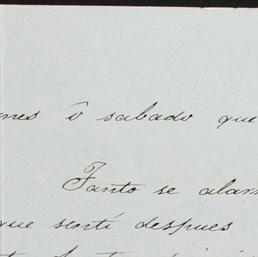 nes ô sabado que
Tanto se alar
que sentí despues